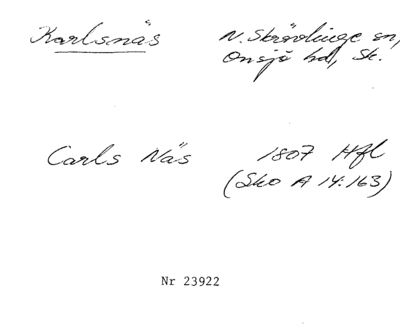 Karlsnäs N. Skrävlinge sn,
Onsjö hd, Sk.
Carls Näs 1807 Hfl
(Sko A 14:163)
Nr 23922